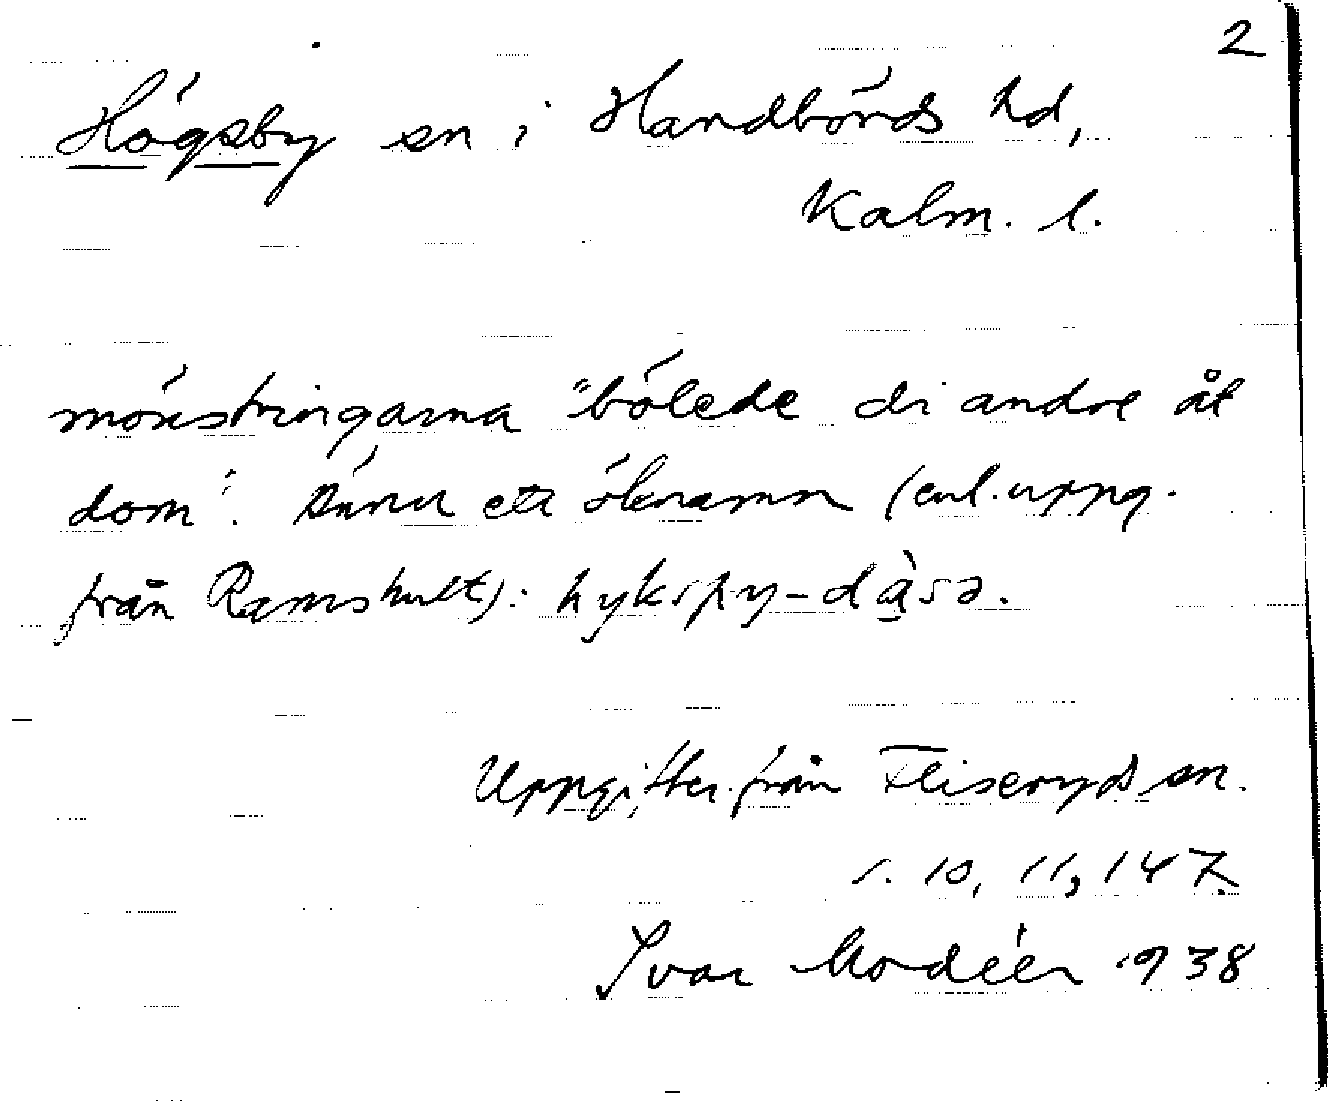 2
Högsby sn i Handbörds hd,
Kalm. l.
mönstringarna "bölede di andre åt
dom". Ännu ett öknamn (enl. uppg.
från Ramshult): hykspy-dåsa.
Uppgifter från Fliseryds sn.
s. 10, 11, 147.
Ivar Modéer 1938